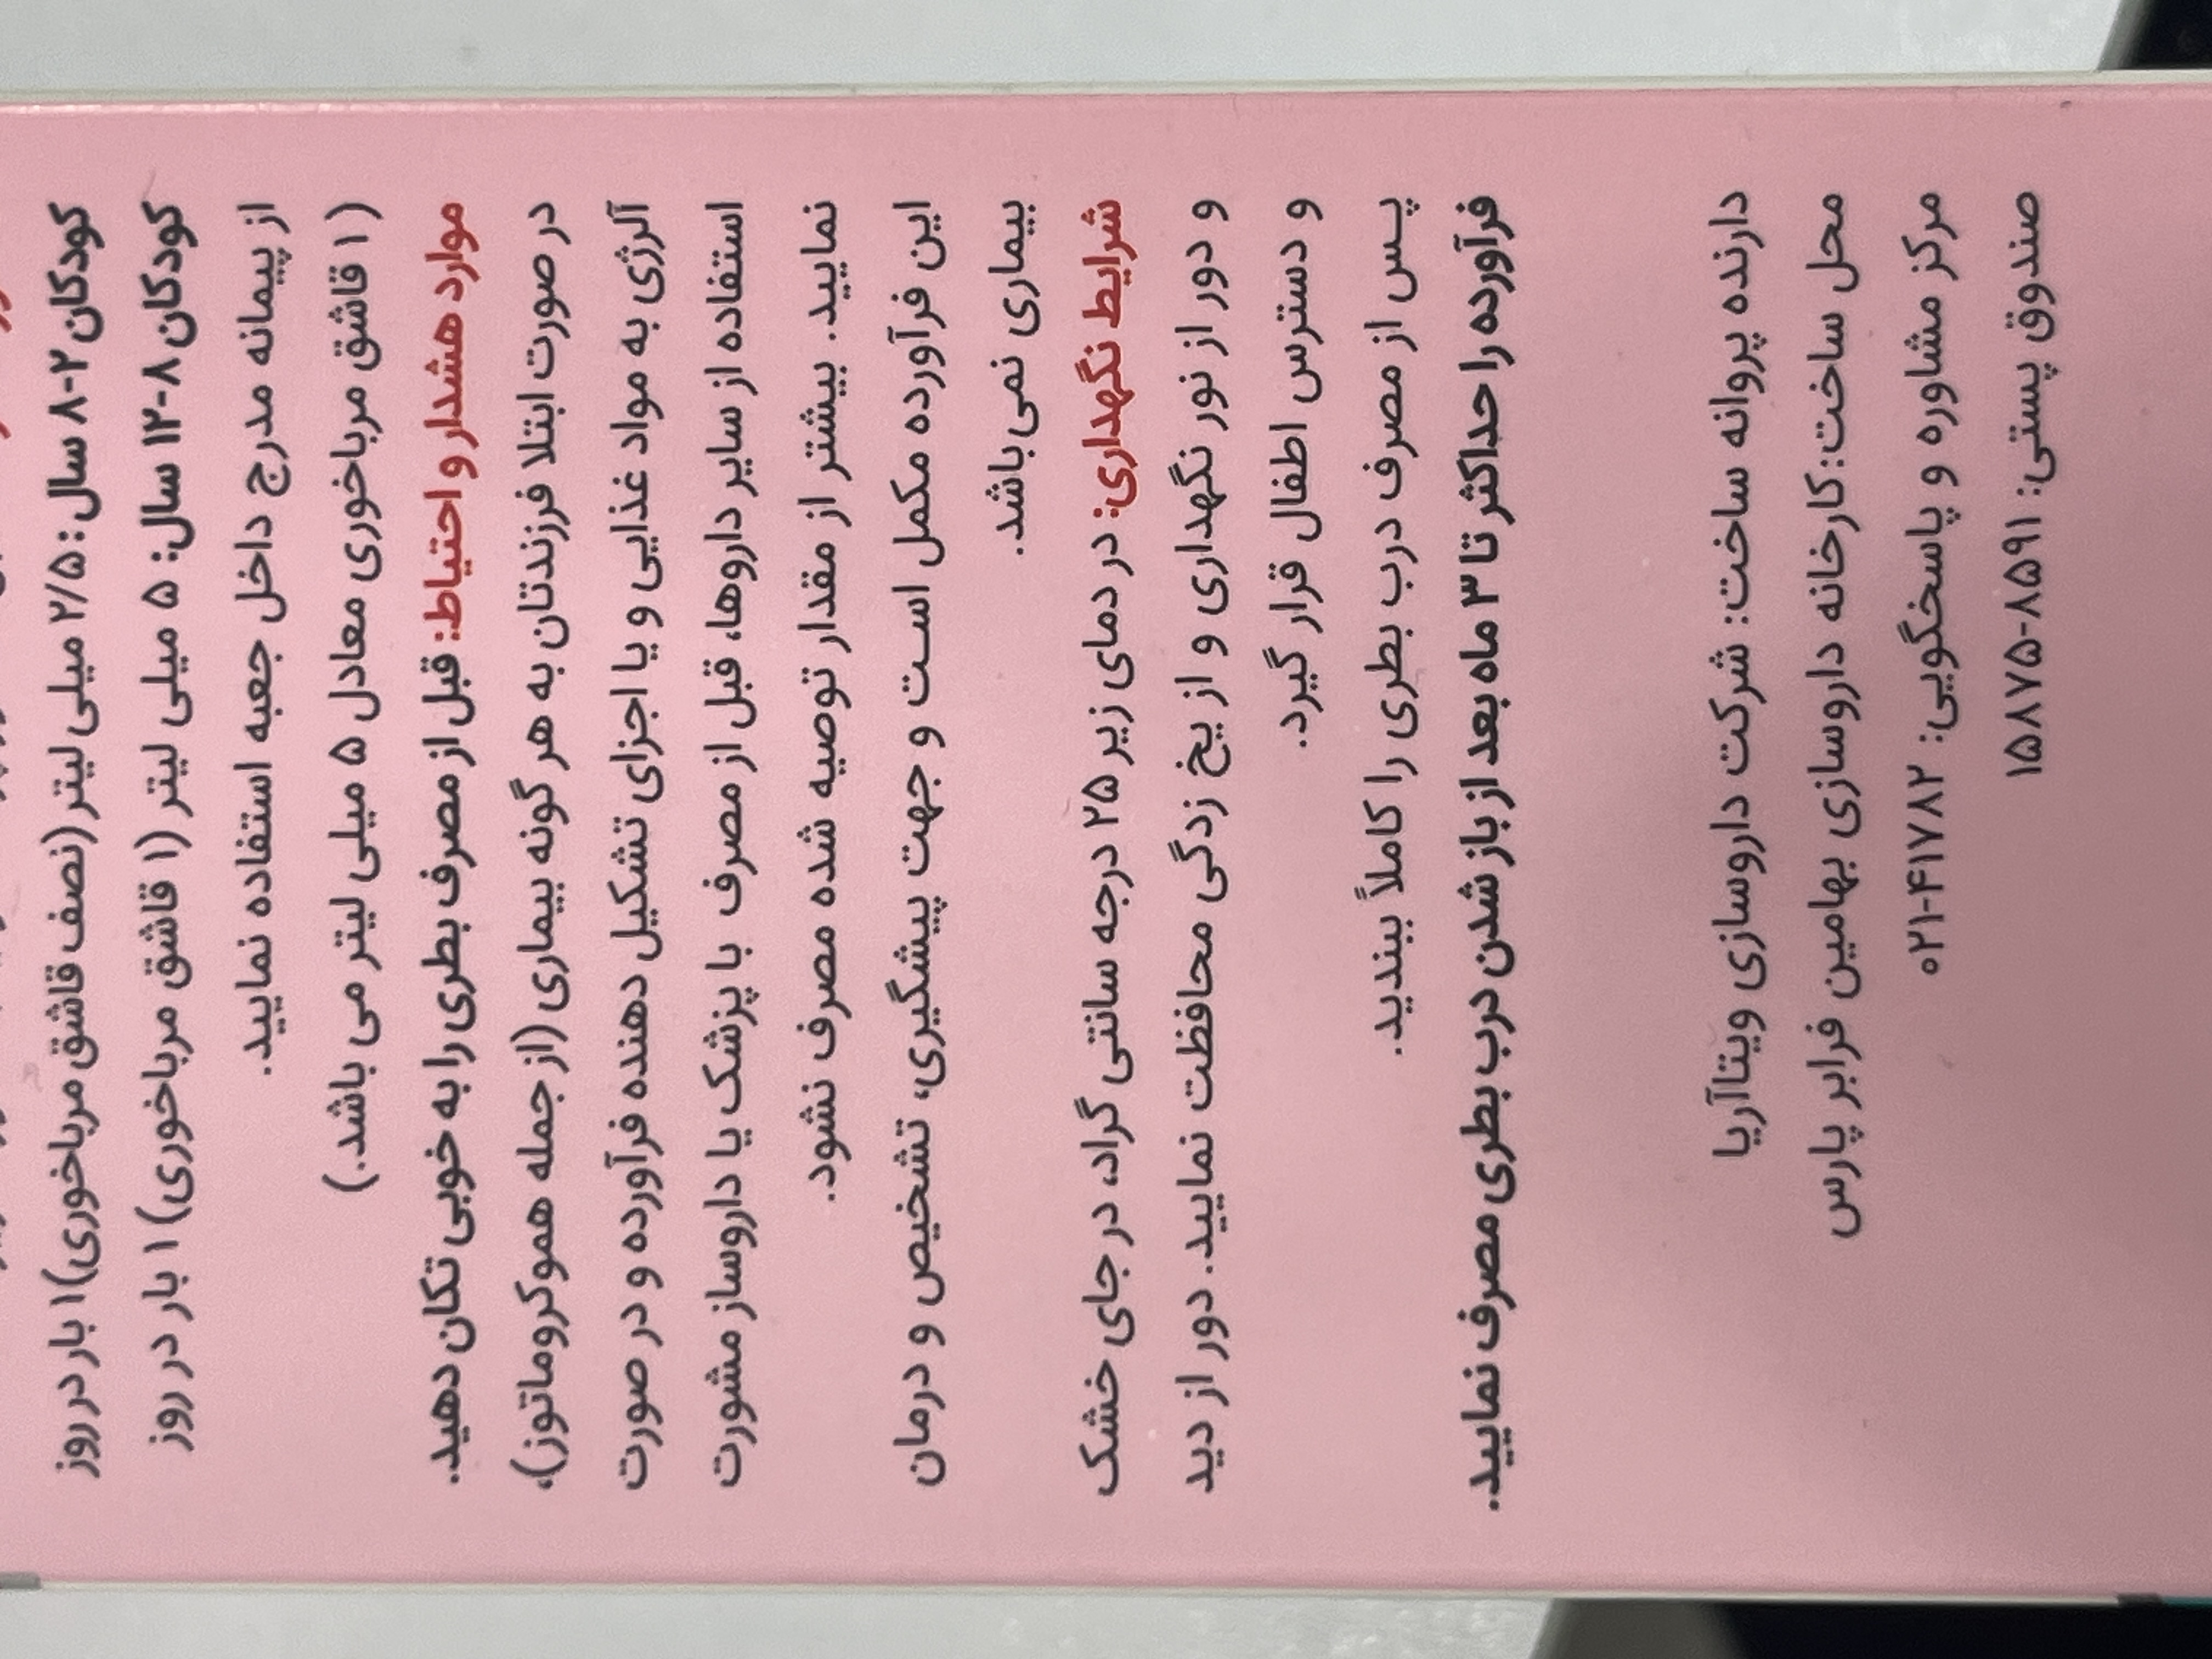 کودکان ۲-۸ سال: ۲/۵ میلی لیتر (نصف قاشق مرباخوری) ۱ بار در روز
کودکان ۸-۱۲ سال: ۵ میلی لیتر (۱ قاشق مرباخوری) ۱ بار در روز
از پیمانه مدرج داخل جعبه استفاده نمایید.
(۱ قاشق مرباخوری معادل ۵ میلی لیتر می باشد.)
موارد هشدار و احتیاط: قبل از مصرف بطری را به خوبی تکان دهید.
در صورت ابتلا فرزندتان به هر گونه بیماری (از جمله هموکروماتوز)،
آلرژی به مواد غذایی و یا اجزای تشکیل دهنده فرآورده و در صورت
استفاده از سایر داروها، قبل از مصرف با پزشک یا داروساز مشورت
نمایید. بیشتر از مقدار توصیه شده مصرف نشود.
این فرآورده مکمل است و جهت پیشگیری، تشخیص و درمان
بیماری نمی‌باشد.
شرایط نگهداری: در دمای زیر ۲۵ درجه سانتی گراد، در جای خشک
و دور از نور نگهداری و از یخ زدگی محافظت نمایید. دور از دید
و دسترس اطفال قرار گیرد.
پس از مصرف درب بطری را کاملاً ببندید.
فرآورده را حداکثر تا ۳ ماه بعد از باز شدن درب بطری مصرف نمایید.
دارنده پروانه ساخت: شرکت داروسازی ویتاآریا
محل ساخت: کارخانه داروسازی بهامین فرابر پارس
مرکز مشاوره و پاسخگویی: ۰۲۱-۴۱۷۸۲
صندوق پستی: ۱۵۸۷۵-۸۵۹۱